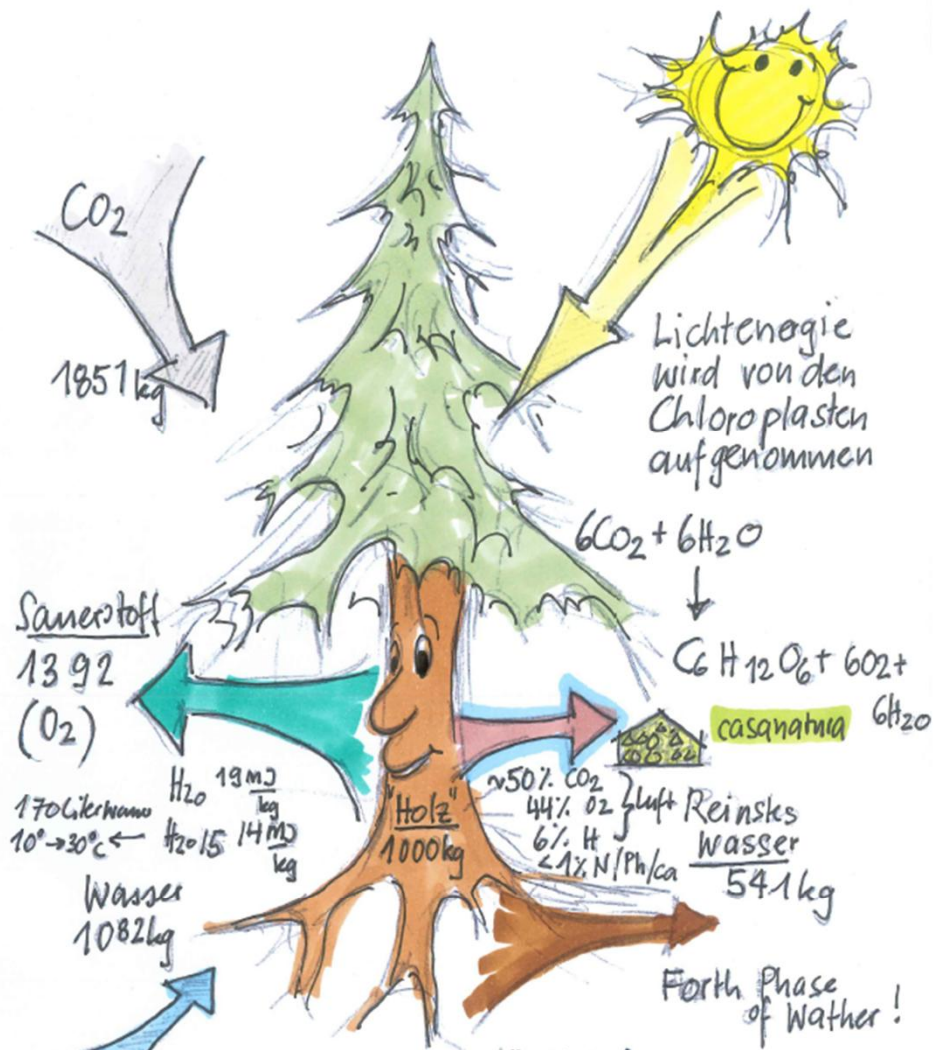 CO2
1851kg
Lichtenergie
wird von den
Chloroplasten
aufgenommen
6CO2 + 6H2O
↓
C6H12O6 + 6O2 +
6H2O
Sauerstoff
1392
(O2)
casanatura
H2O 19 MJ/kg
170 Liter
10° → 30°c ← H2O15 14 MJ/kg
Wasser
1082kg
"Holz"
1000kg
~50% CO2
44% O2 } Luft
6% H
<1% N/Ph/Ca
Reinstes
Wasser
541kg
Forth Phase
of Wather!